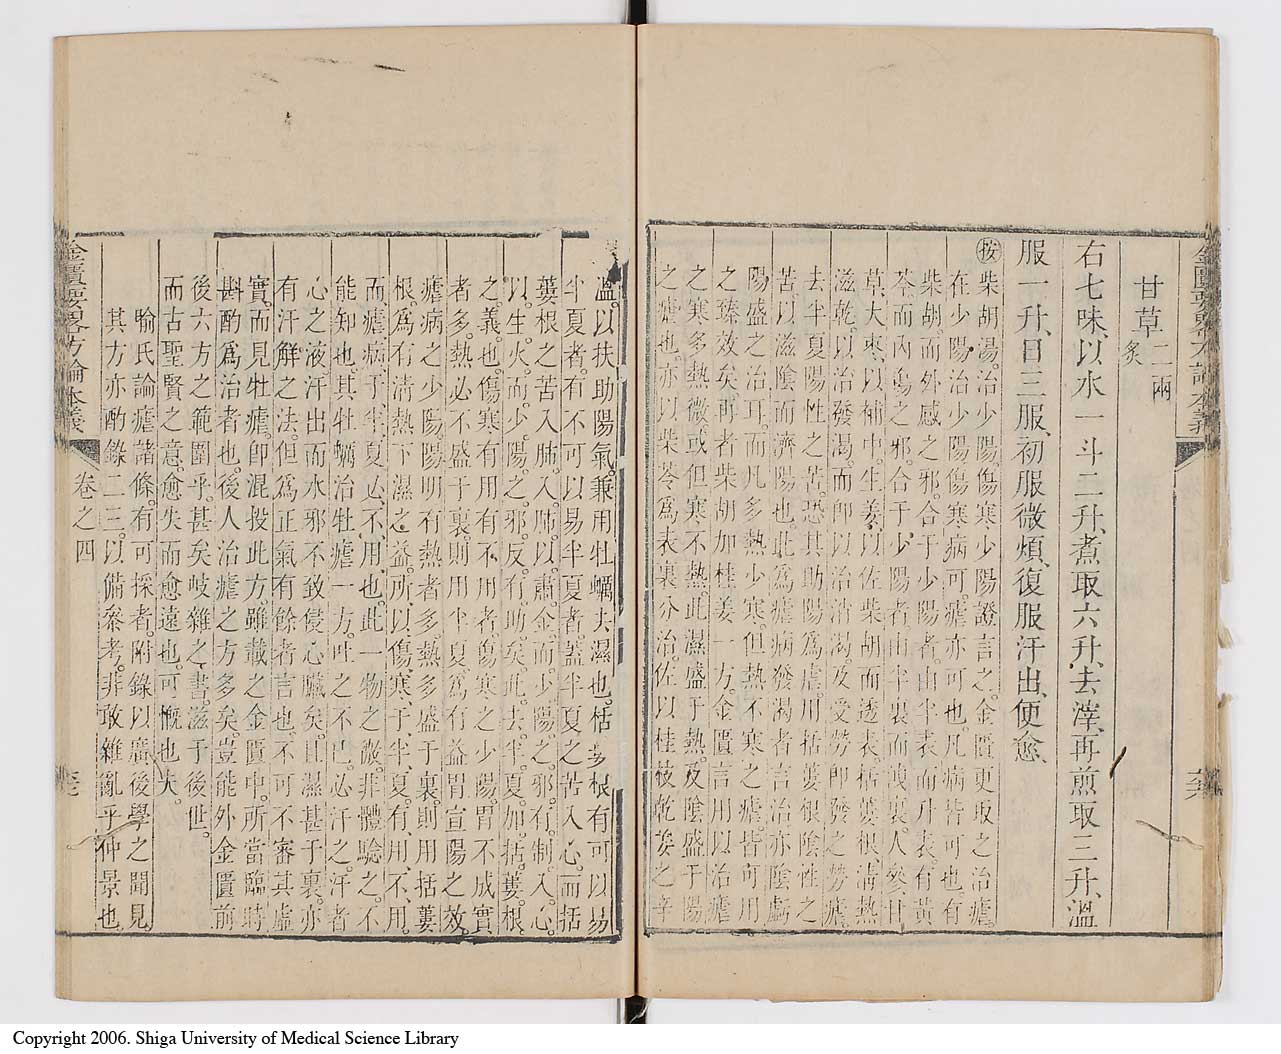 甘草二兩
炙
右七味、以水一斗二升、煮取六升、去滓、再煎取三升、溫
服一升、日三服、初服微煩、復服汗出、便愈
按柴胡湯。治少陽傷寒少陽證言之。金匱更取之治瘧。
在少陽治少陽傷寒病可瘧亦可也。凡病皆可也有
柴胡。而外感之邪。合于少陽者。由半表而升表。有黃
芩而內傷之邪。合于少陽者由半裏而溲裏。人參甘
草大棗。以補中。生姜以佐柴胡而透表。栝蔞根清熱
滋乾。以治發渴。而卽以治消渴。及受勞卽發之勞瘧。
去半夏陽性之苦。恐其助陽爲虐。用括蔞根陰性之
苦以滋陰而濟陽也。此爲瘧病發渴者言治亦陰虧
陽盛之治耳。而凡多熱少寒。但熱不寒之瘧。皆可用
之臻效矣。再者柴胡加桂姜一方。金匱言用以治瘧
之寒多熱微。或但寒不熱。此濕盛于熱。及陰盛于陽
之瘧也。亦以柴苓爲表裏分治。佐以桂枝乾姜之辛
溫。以扶助陽氣。兼用牡蠣去濕也。栝蔞根有可以易
半夏者。有不可以易半夏者。蓋半夏之苦入心。而括
蔞根之苦入肺。入肺。以肅金。而少陽之邪。有制。入心。
以生火。而少陽之邪。反有助矣。此。去半夏。加括蔞根。
之義也。傷寒有用有不用者。傷寒之少陽。胃不成實
者多。熱必不盛于裏。則用半夏。爲有益胃宣陽之效。
瘧病之少陽。陽明有熱者多。熱多盛于裏。則用括蔞
根。爲有清熱下濕之益。所以傷寒于半夏。有用不用。
而瘧病于半夏必不用也。此一物之微。非體驗之。不
能知也。其牡蠣治牡瘧一方。吐之不已。必汗之。汗者
心之液。汗出而水邪不致侵心臟矣。且濕甚于裏。亦
有汗解之法。但爲正氣有餘者言也。不可不審其虛
實。而見牡瘧。卽混投此方。雖載之金匱中。所當臨時
斟酌爲治者也。後人治瘧之方多矣。豈能外金匱前
後六方之範圍乎。甚矣岐雜之書。滋于後世。
而古聖賢之意。愈失而愈遠也。可慨也夫。
喻氏論瘧諸條。有可採者。附錄以廣後學之聞見
其方亦酌錄二三。以備參考。非敢雜亂乎仲景也
金匱要畧方論本義
卷之四
六七